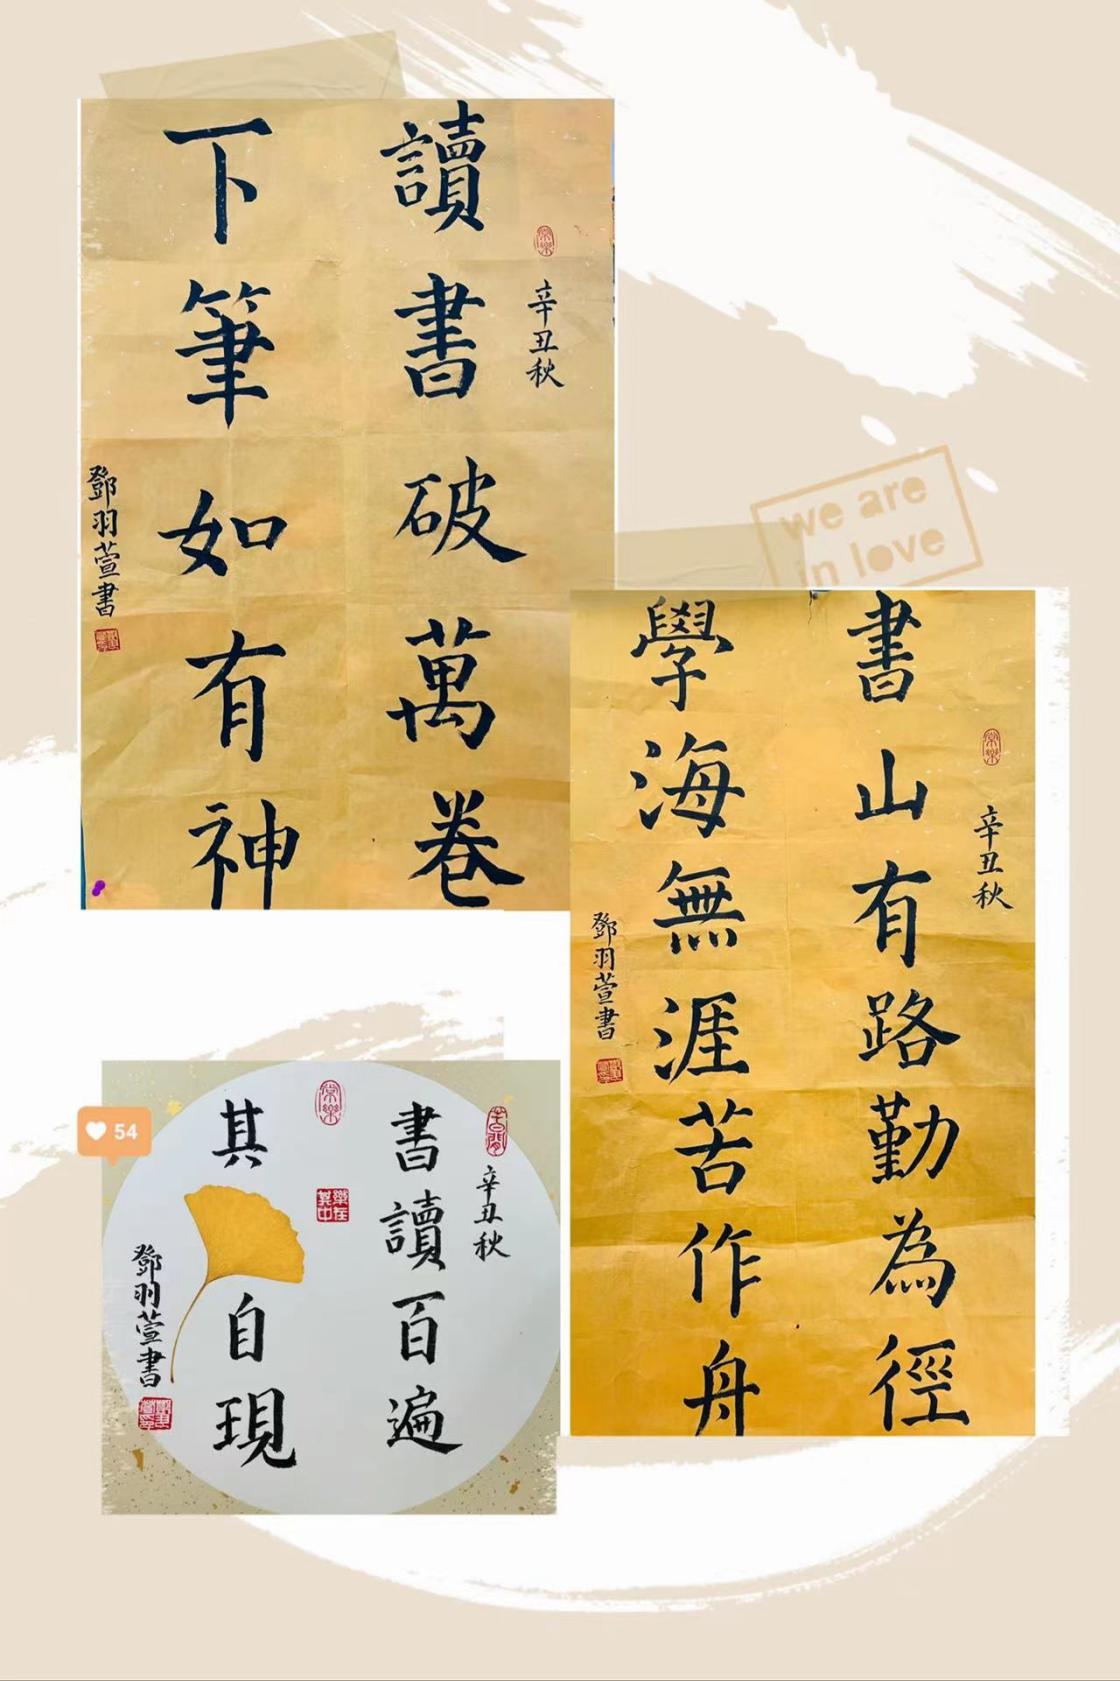 辛丑秋
讀書破萬卷
下筆如有神
鄧羽萱書
we are
in love
辛丑秋
書山有路勤為徑
學海無涯苦作舟
鄧羽萱書
54
辛丑秋
書讀百遍
其自現
樂在其中
鄧羽萱書